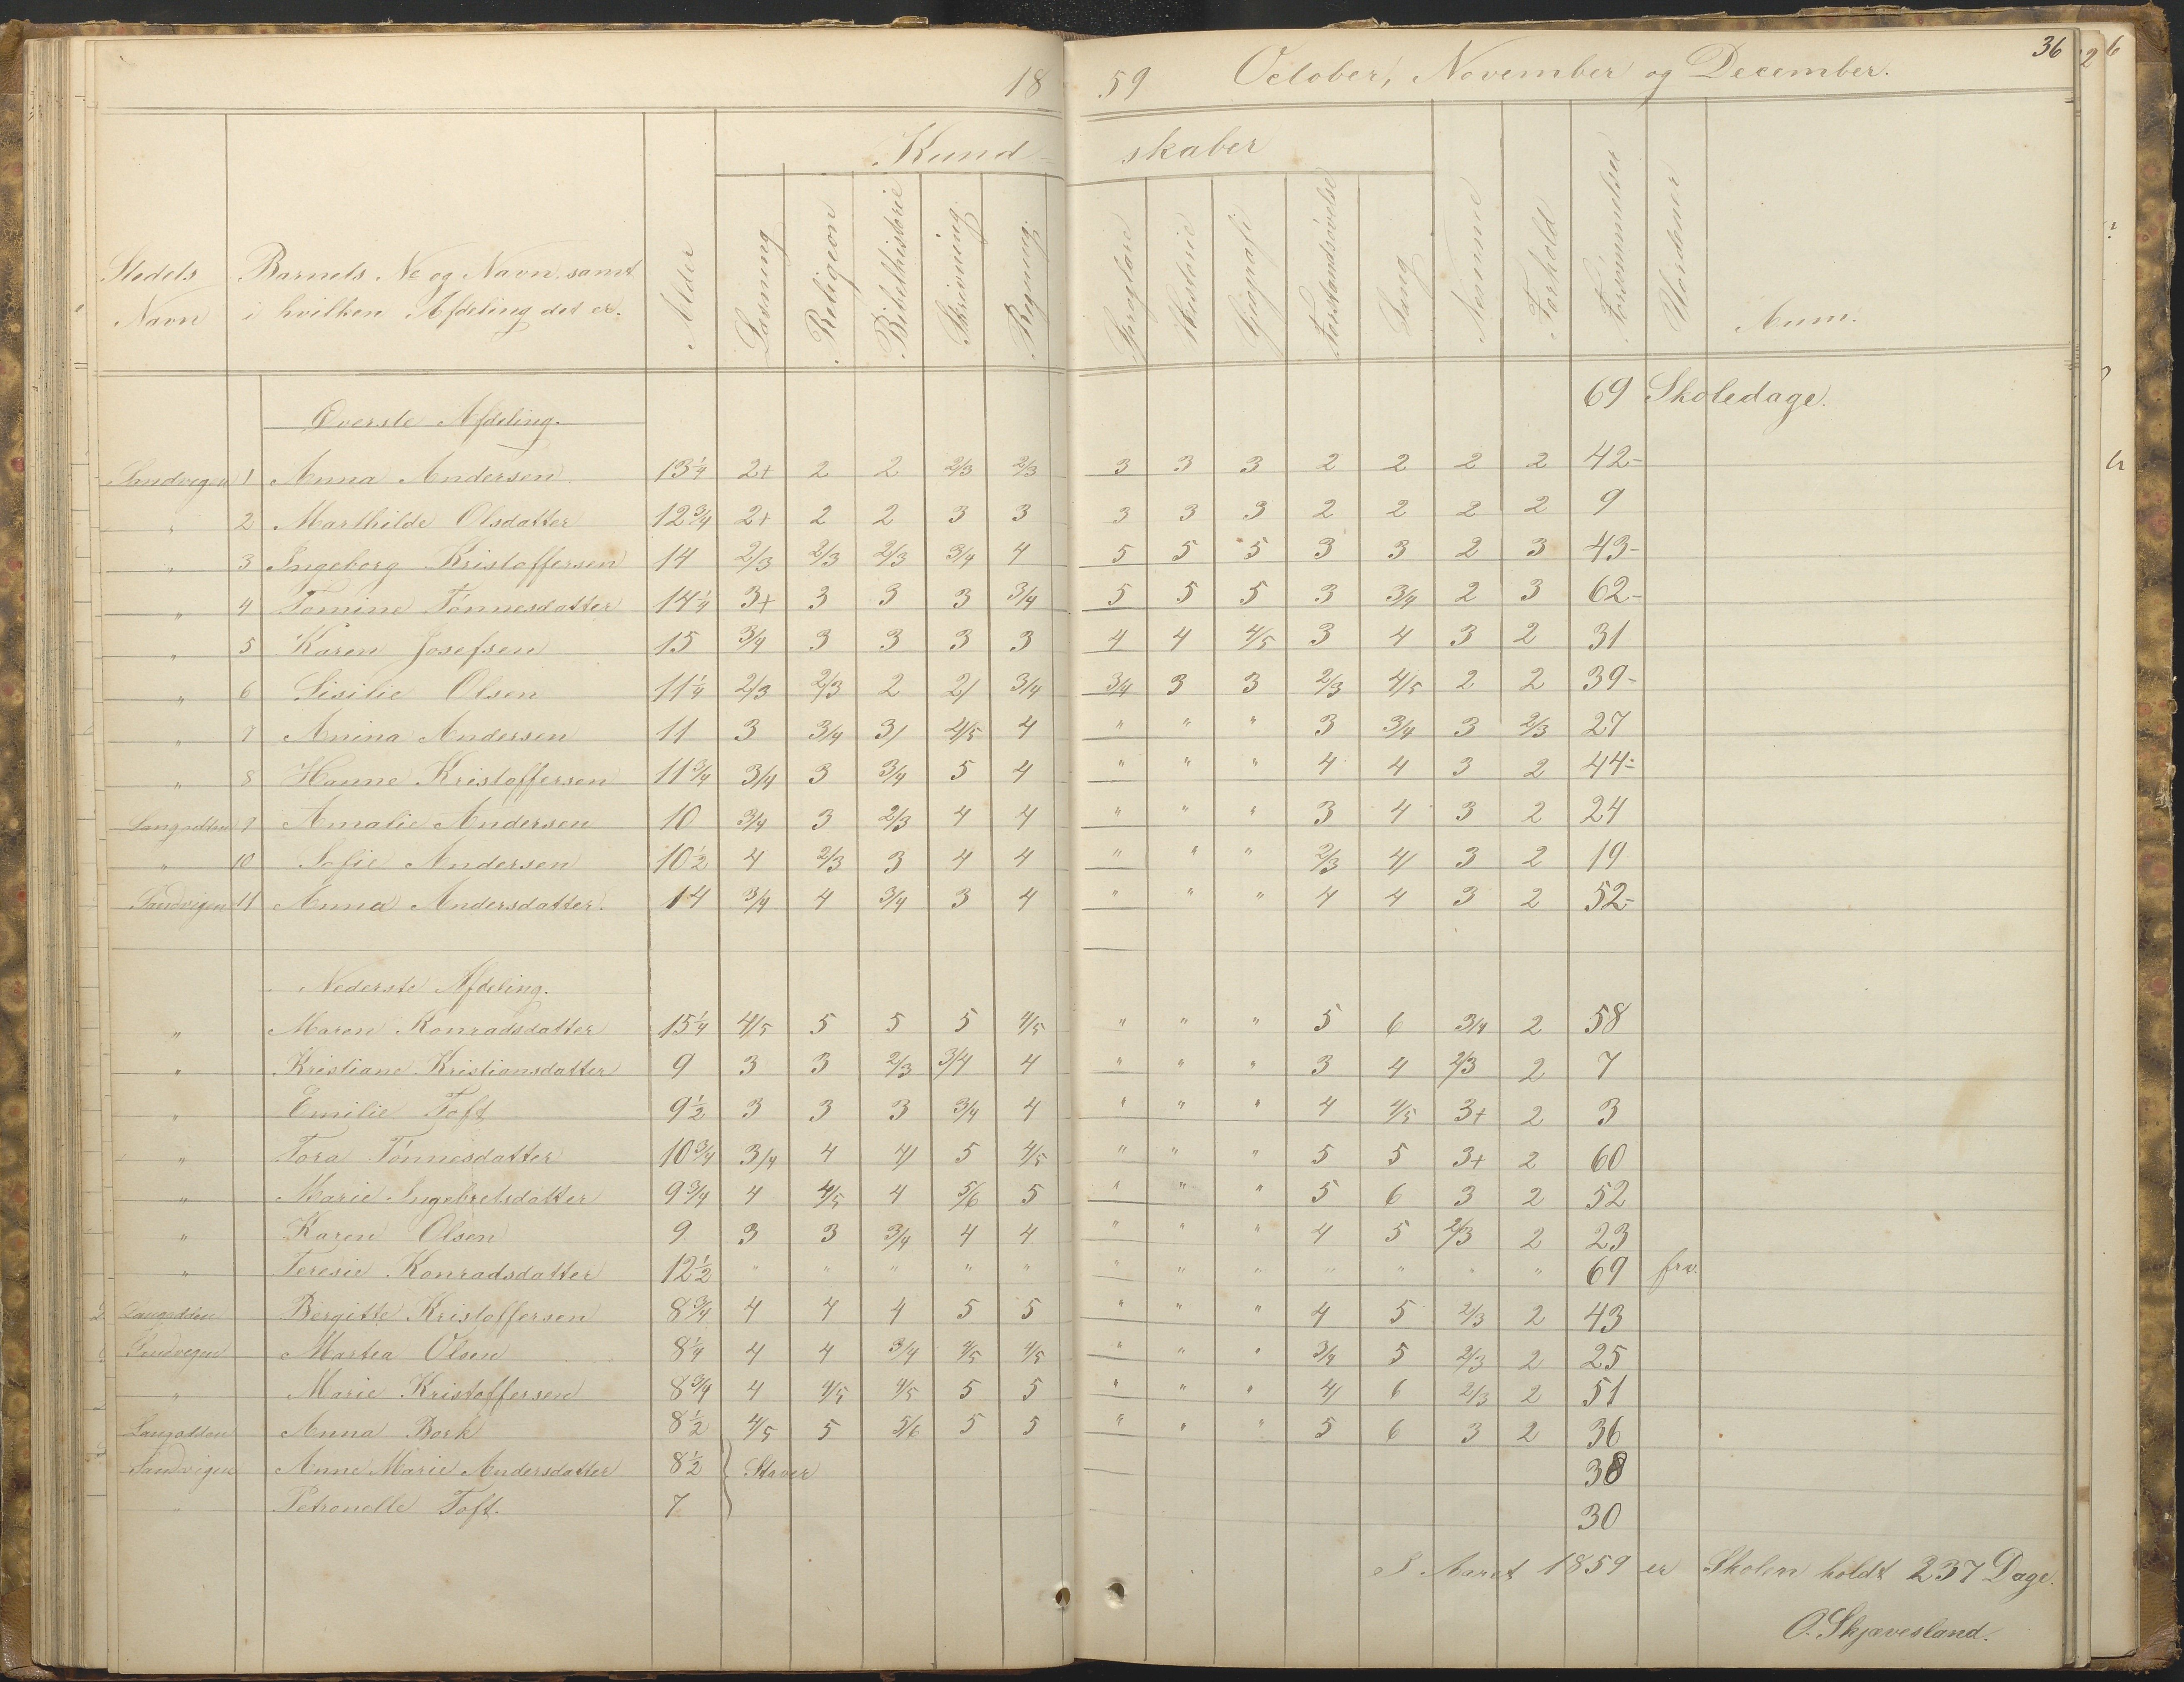 36
1859 October, November og December.
Kundskaber
Stedets Navn
Barnets No og Navn samt i hvilken Afdeling det er.
Alder
Læsning
Religion
Bibelhistorie
Skrivning
Regning
Sproglære
Historie
Geografi
Forstandsøvelse
Sang
Nemme
Forhold
Forsømmelser
Uordener
Anm.
Øverste Afdeling. 69 Skoledage.
Sandvigen 1 Anna Andersen 13 1/4 2+ 2 2 2/3 2/3 3 3 3 2 2 2 2 42-
" 2 Marthilde Olsdatter 12 3/4 2+ 2 2 3 3 3 3 3 2 2 2 2 9
" 3 Ingeborg Kristoffersen 14 2/3 2/3 2/3 3/4 4 5 5 5 3 3 2 3 43-
" 4 Tomine Tønnesdatter 14 1/4 3+ 3 3 3 3/4 5 5 5 3 3/4 2 3 62-
" 5 Karen Josefsen 15 3/4 3 3 3 3 4 4 4/5 3 4 3 2 31
" 6 Sisilie Olsen 11 1/4 2/3 2/3 2 2/ 3/4 3/4 3 3 2/3 4/5 2 2 39-
" 7 Anina Andersen 11 3 3/4 3/ 4/5 4 " " " 3 3/4 3 2/3 27
" 8 Hanne Kristoffersen 11 3/4 3/4 3 3/4 5 4 " " " 4 4 3 2 44-
Langodden 9 Amalie Andersen 10 3/4 3 2/3 4 4 " " " 3 4 3 2 24
" 10 Sofie Andersen 10 1/2 4 2/3 3 4 4 " " " 2/3 4/ 3 2 19
Sandvigen 11 Anna Andersdatter. 14 3/4 4 3/4 3 4 " " " 4 4 3 2 52-
Nederste Afdeling.
" Maren Konradsdatter 15 1/4 4/5 5 5 5 4/5 " " " 5 6 3/4 2 58
" Kristiane Kristiansdatter 9 3 3 2/3 3/4 4 " " " 3 4 2/3 2 7
" Emilie Toft 9 1/2 3 3 3 3/4 4 " " " 4 4/5 3+ 2 3
" Tora Tønnesdatter 10 3/4 3/4 4 4/ 5 4/5 " " " 5 5 3+ 2 60
" Marie Ingebretsdatter 9 3/4 4 4/5 4 5/6 5 " " " 5 6 3 2 52
" Karen Olsen 9 3 3 3/4 4 4 " " " 4 5 2/3 2 23
" Teresie Konradsdatter 12 1/2 " " " " " " " " " " " " 69 frv.
Langodden Bergitte Kristoffersen 8 3/4 4 4 4 5 5 " " " 4 5 2/3 2 43
Sandvigen Martea Olsen 8 1/4 4 4 3/4 4/5 4/5 " " " 3/4 5 2/3 2 25
" Marie Kristoffersen 8 3/4 4 4/5 4/5 5 5 " " " 4/ 6 2/3 2 51
Langodden Anna Bork 8 1/2 4/5 5 5/6 5 5 " " " 5 6 3 2 36
Sandvigen Anne Marie Andersdatter 8 1/2 } Staver 38
" Petronelle Toft. 7 30
I Aaret 1859 er Skolen holdt 237 Dage.
O. Skjævesland.